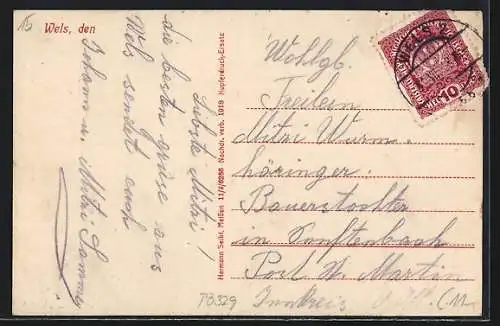 15
Wels, den
Liebste Mitzi!
die besten Grüse aus
Wels sendet euch
Johann u. Mitzi
Hermann Seibt, Meißen Nachdr. verb. 1918 Kupferdruck-Ersatz
WELS 2
10
Wohlgb.
Freilein
Mitzi Wurm-
höringer
Bauerstochter
in
Post St. Martin
Innkreis
TB329